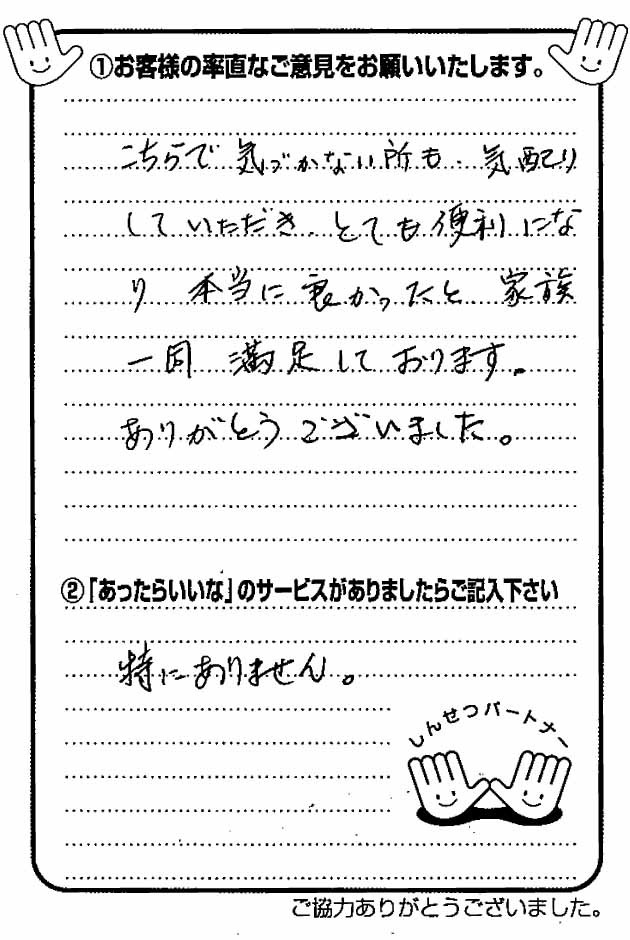 ①お客様の率直なご意見をお願いいたします。
こちらで 気づかない所も、気配り
していただき、とても便利にな
り 本当に良かったと 家族
一同 満足しております。
ありがとうございました。
②「あったらいいな」のサービスがありましたらご記入下さい
特にありません。
しんせつパートナー
ご協力ありがとうございました。